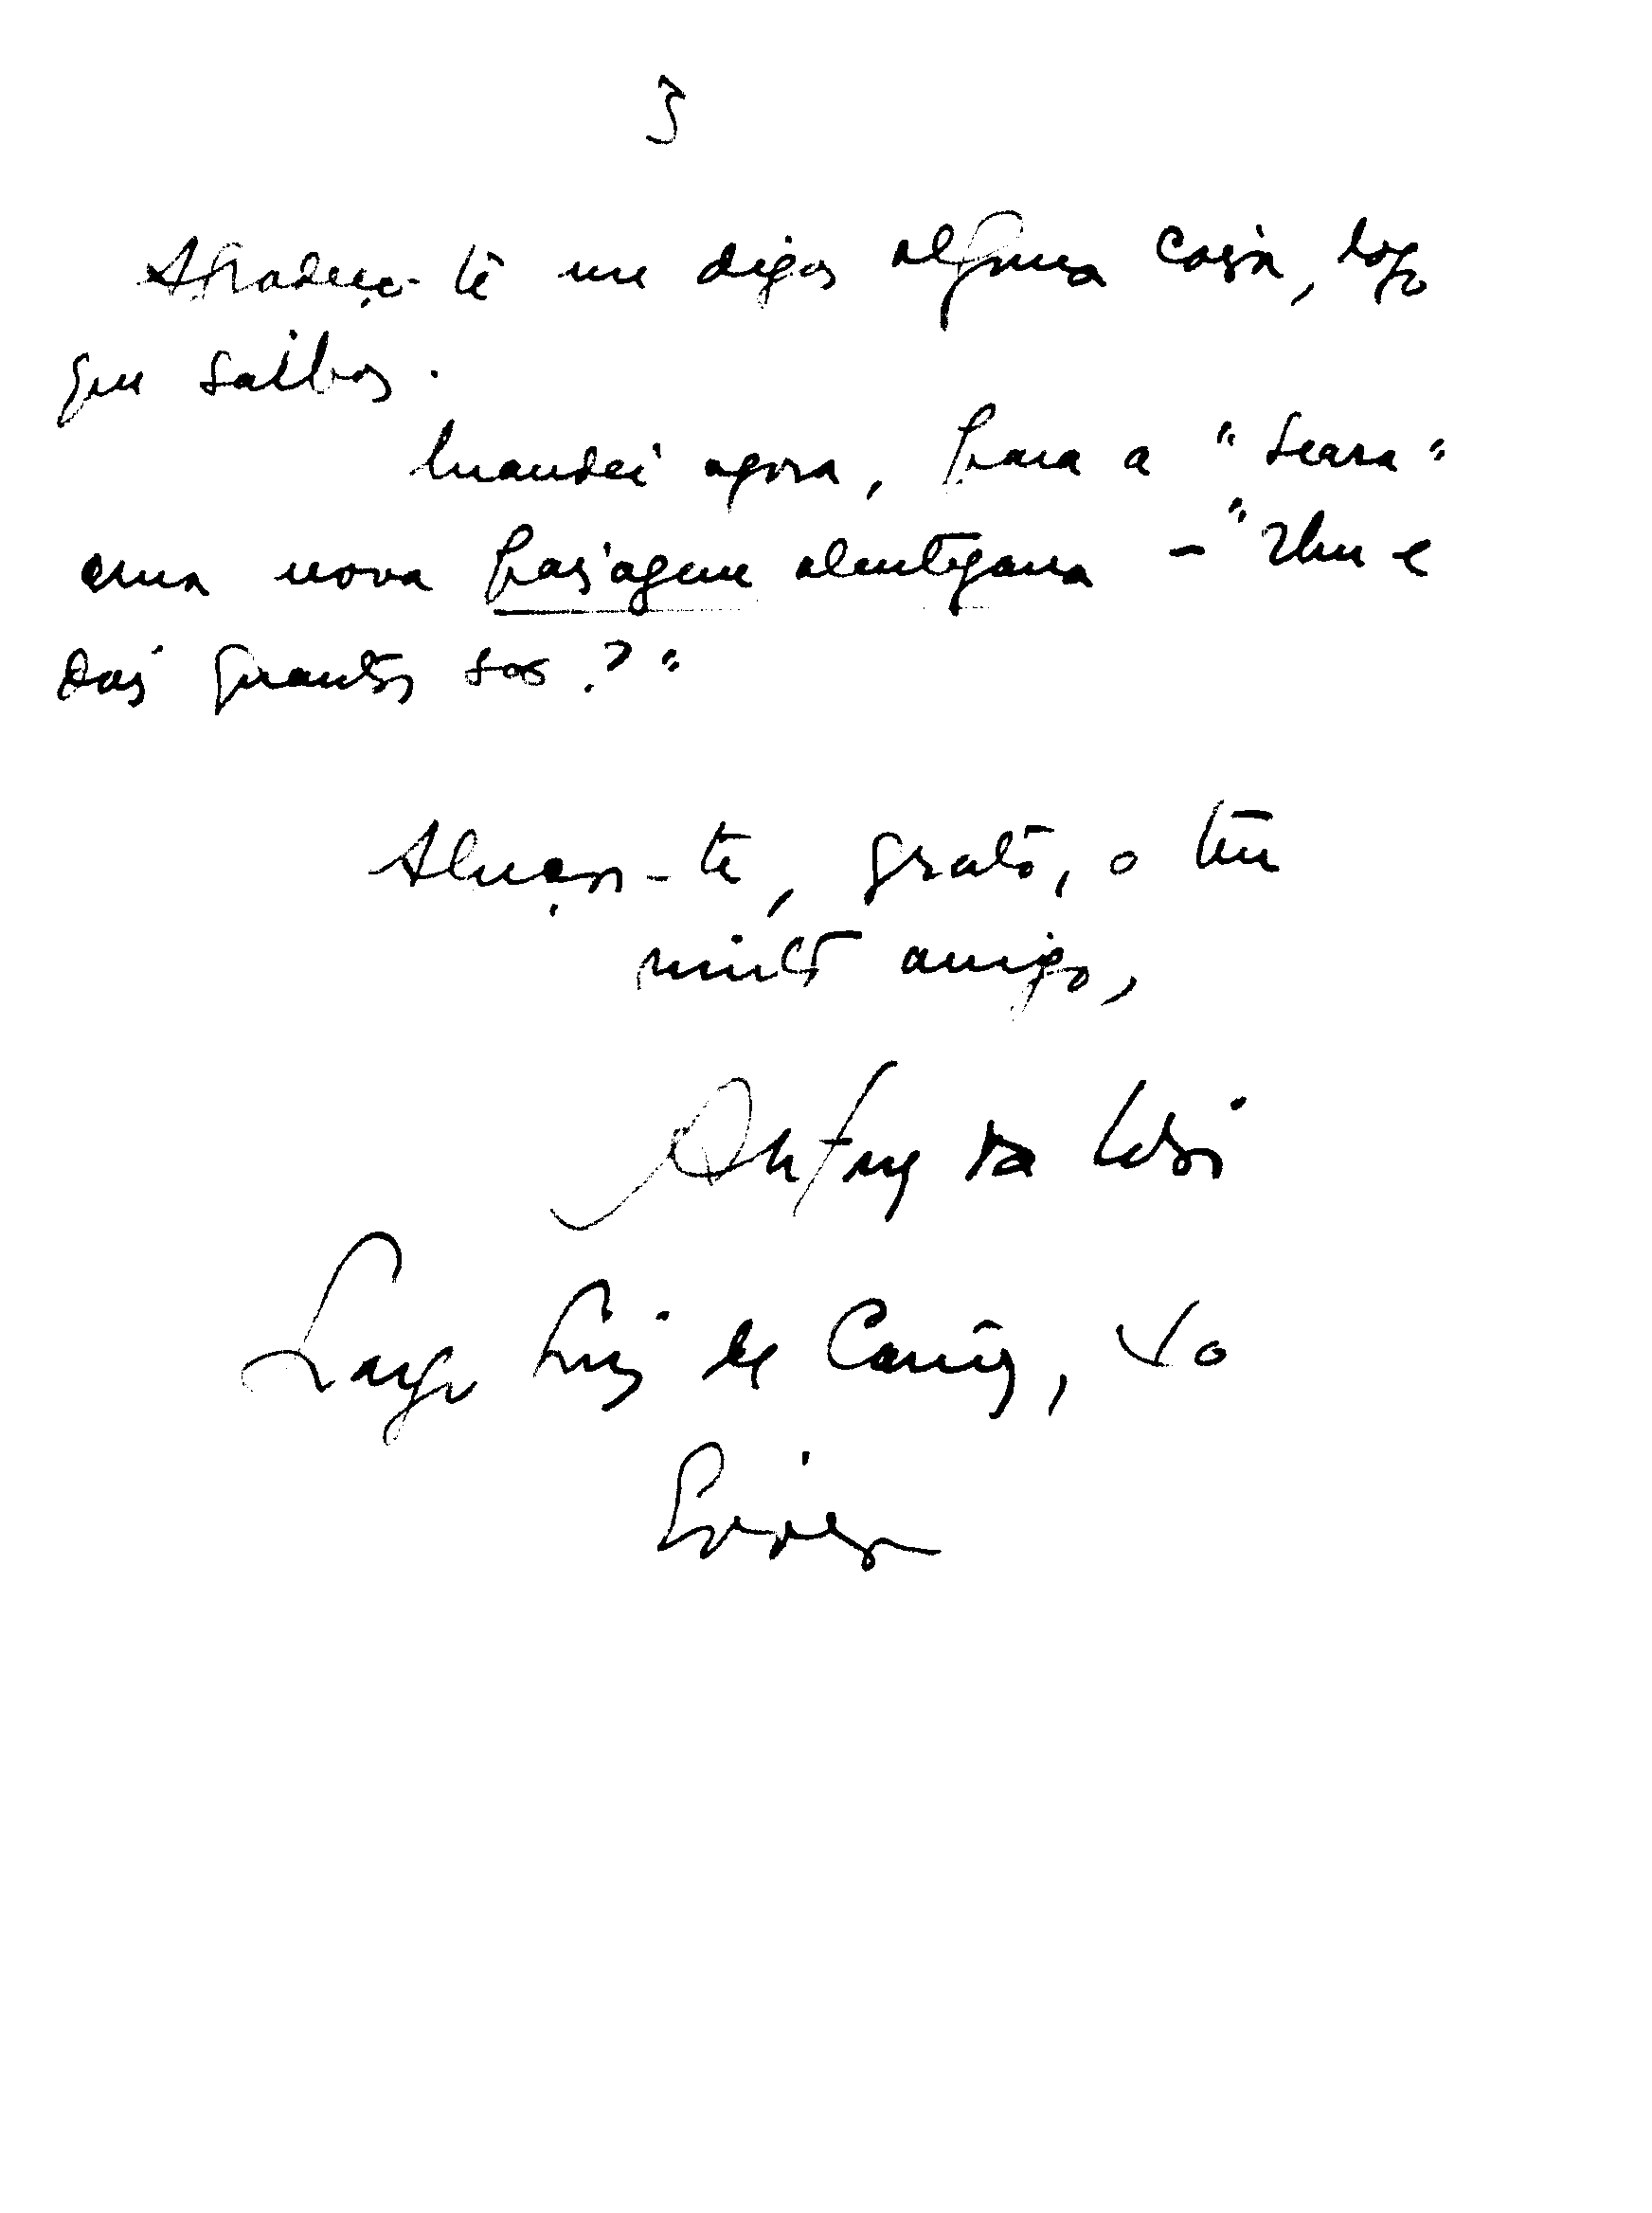 3
Agradeço-te me digas alguma coisa, logo
que saibas.
Mandei agora, para a "Seara"
uma nova passagem alentejana - "Um e
dois quantos são?"
Abraça-te, grato, o teu
muito amigo,
Antunes da Silva
Largo Luis de Camões, 10
Évora